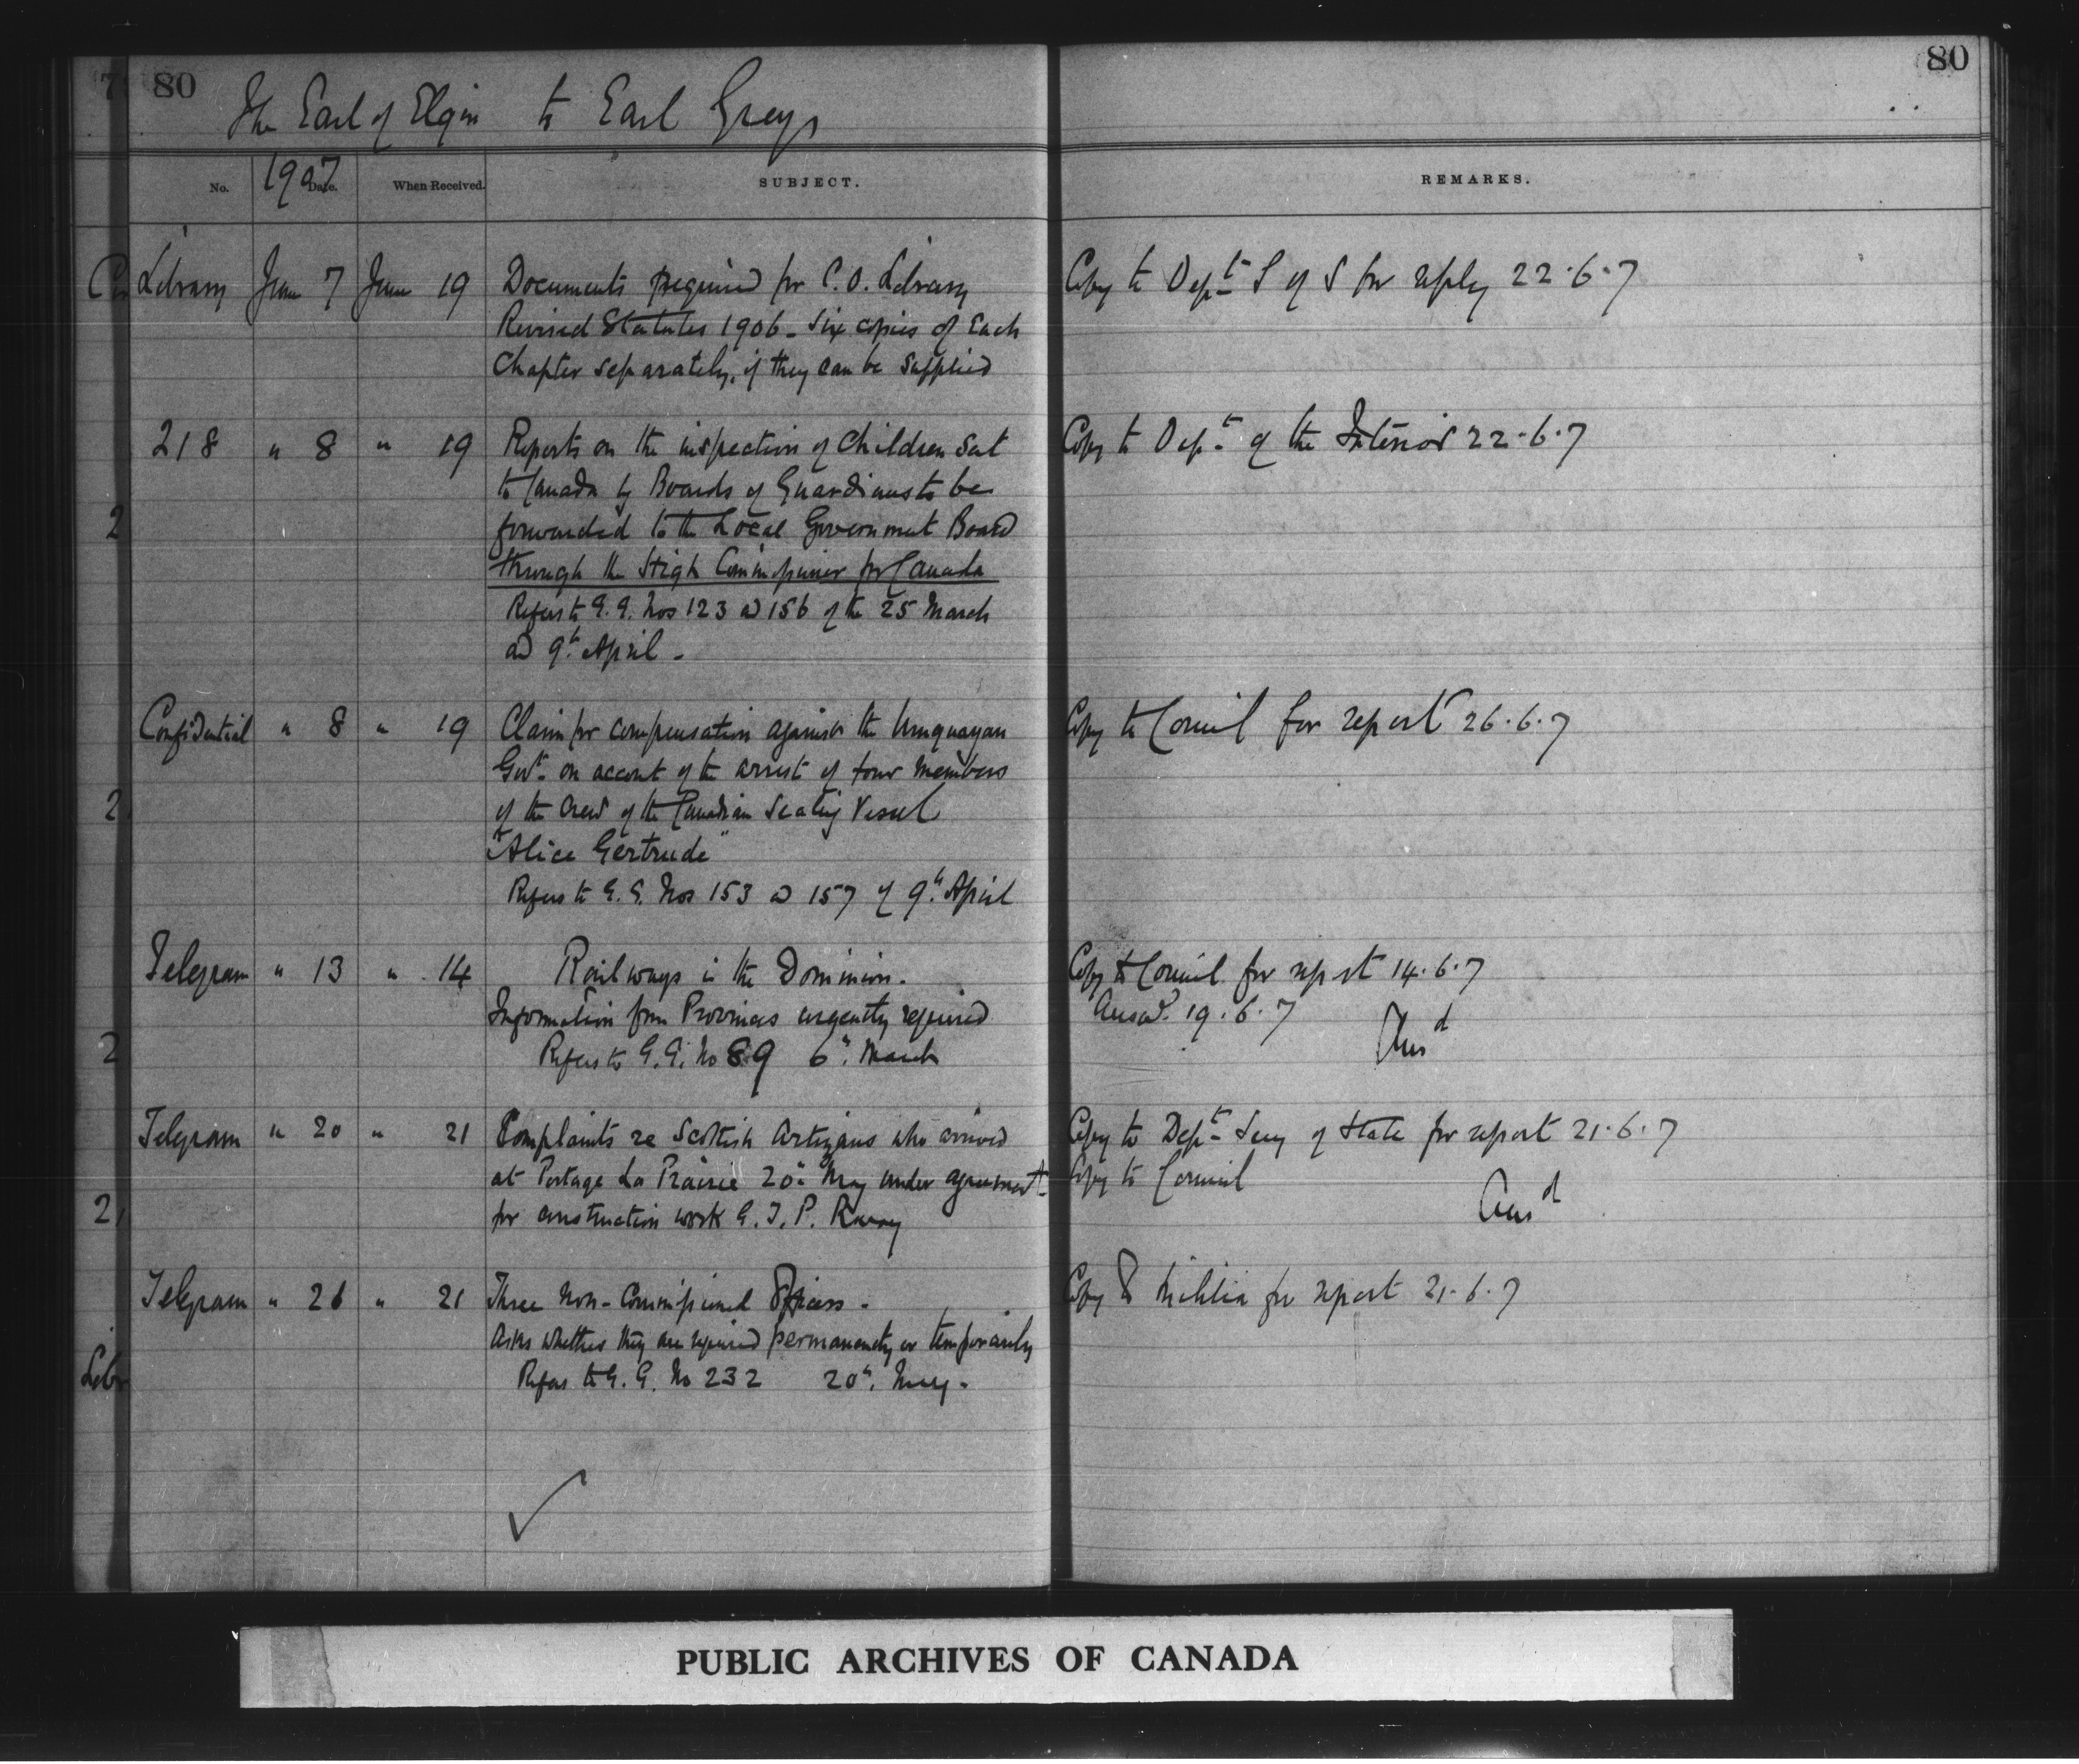 80
80
The Earl of Elgin to Earl Grey
1907
No. Date. When Received. SUBJECT. REMARKS.
Library June 7 June 19 Documents required for C.O. Library Copy to Dept S of S for reply 22.6.7
Revised Statutes 1906 - six copies of each
Chapter separately, if they can be supplied
218 " 8 " 19 Reports on the inspection of Children sent Copy to Dept of the Interior 22.6.7
to Canada by Boards of Guardians to be
forwarded to the Local Government Board
through the High Commissioner for Canada
Refers to G.G. Nos 123 & 156 of the 25 March
and 9th April -
Confidential " 8 " 19 Claim for compensation against the Uruguayan Copy to Council for report 26.6.7
Govt on account of the arrest of four members
of the crew of the Canadian Sealing Vessel
"Alice Gertrude"
Refers to G.G. Nos 153 & 157 of 9th April
Telegram " 13 " 14 Railways in the Dominion. Copy to Council for report 14.6.7
Information from Provinces urgently required Answd. 19.6.7 Ansd
Refers to G.G. No 89 6th March
Telegram " 20 " 21 Complaints re Scottish Artizans who arrived Copy to Dept Secy of State for report 21.6.7
at Portage La Prairie 20th May under agreement Copy to Council
for construction work G.T.P. Rway Ansd
Telegram " 21 Three Non-Commissioned Officers. Copy to Militia for report 21.6.7
Asks whether they are required permanently or temporarily
Refers to G.G. No 232 20th May.
PUBLIC ARCHIVES OF CANADA